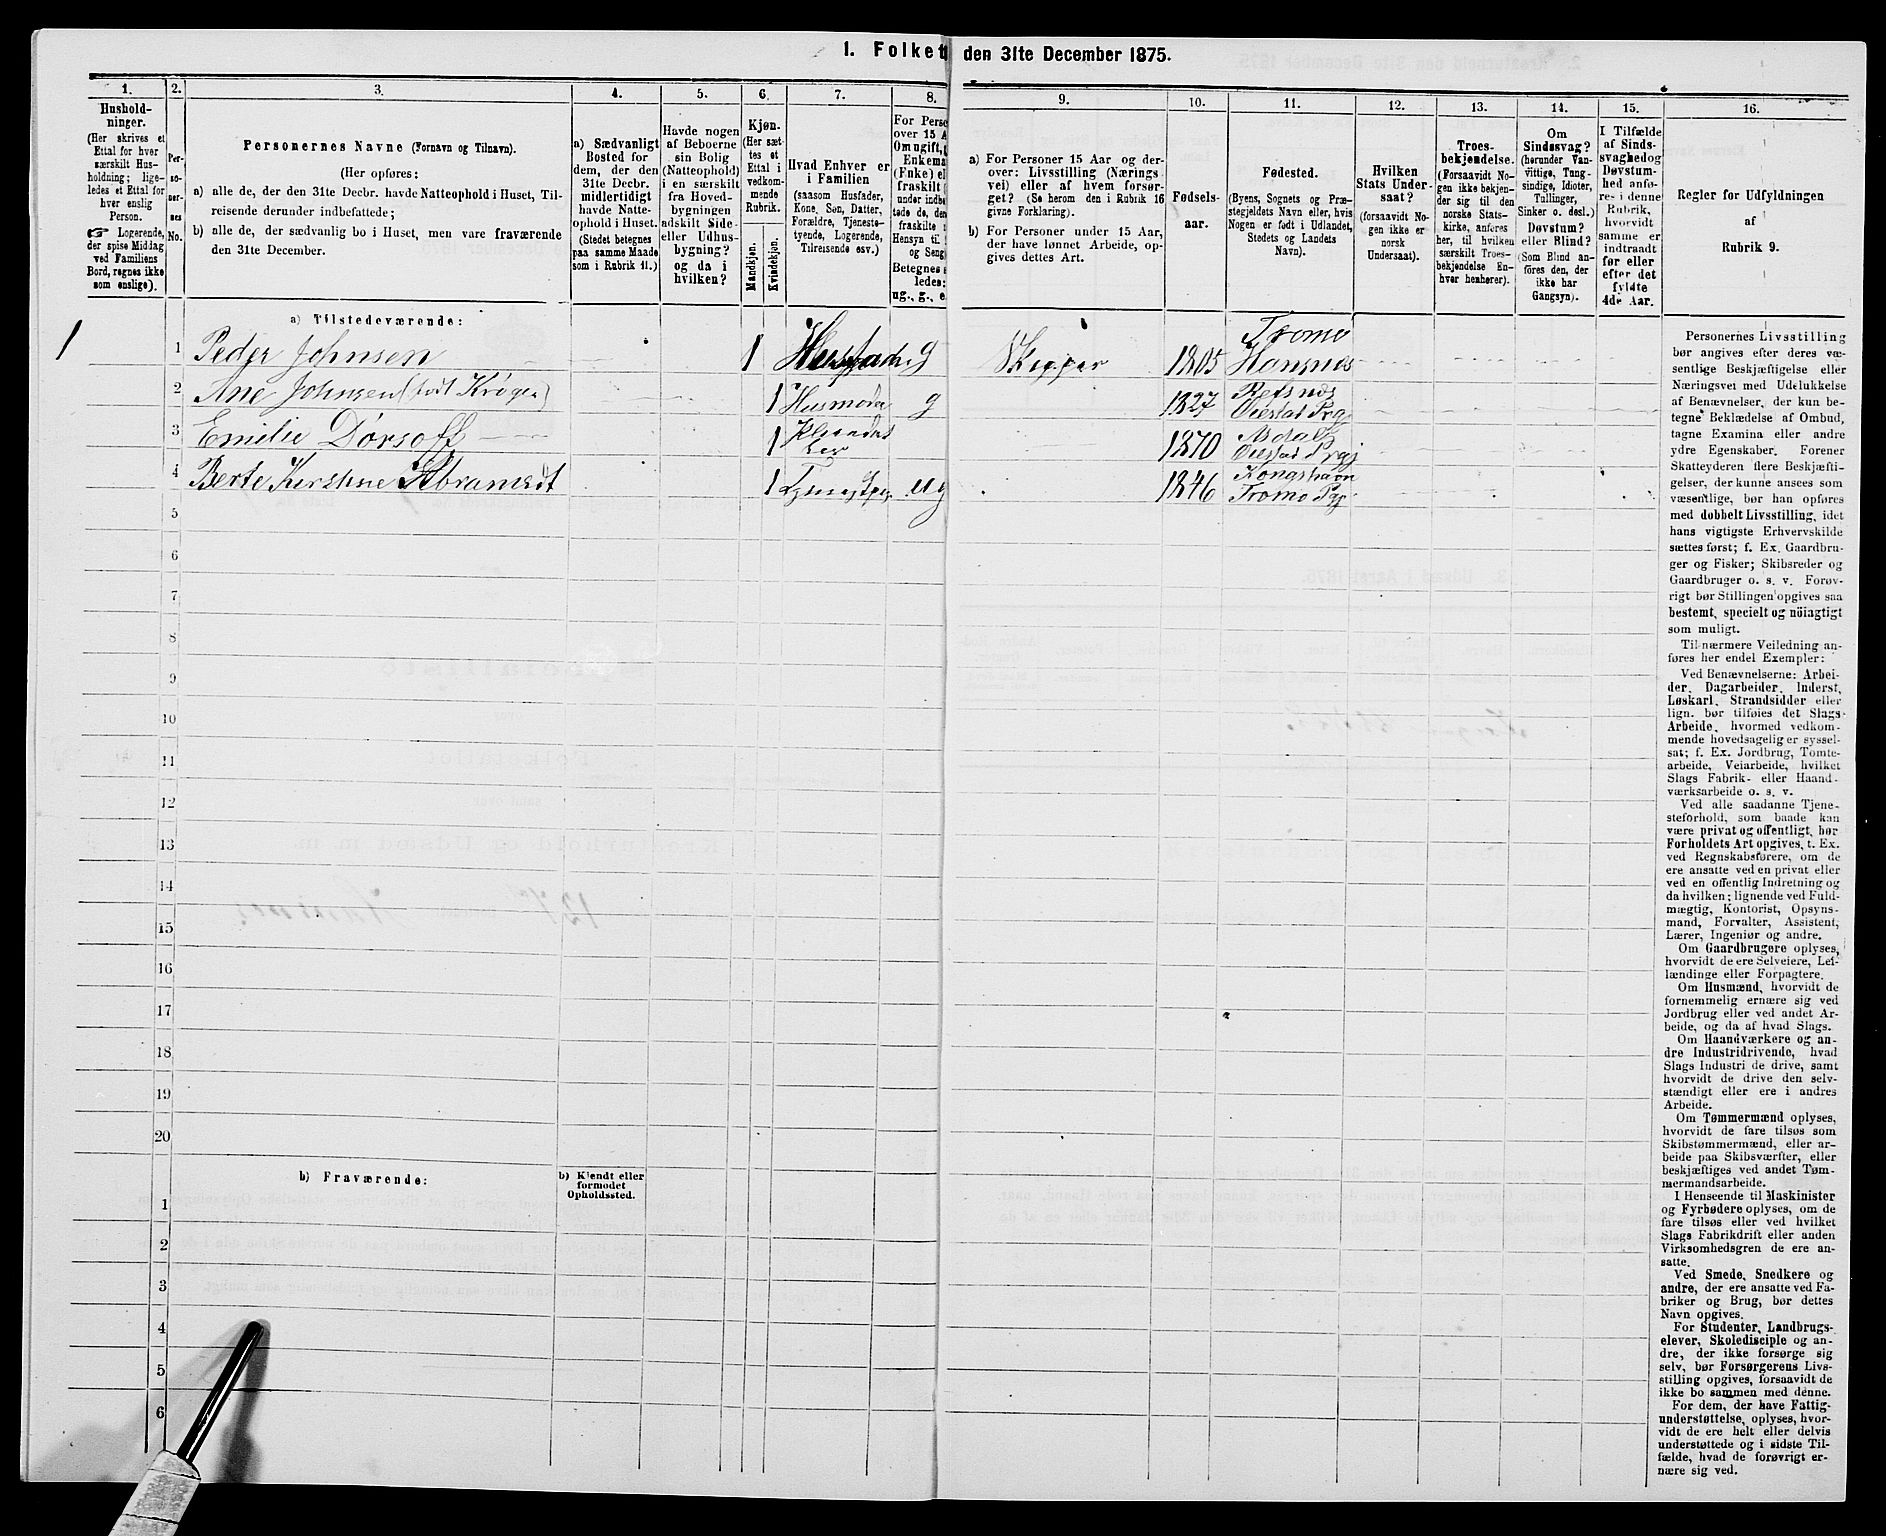 1. Folket den 31te December 1875.
1.
Hushold-
ninger.
(Her skrives et
Ettal for hver
særskilt Hus-
holdning; lige-
ledes et Ettal for
hver enslig
Person.
Logerende,
der spise Middag
ved Familiens
Bord, regnes ikke
som enslige).
2.
Per-
so-
ner-
nes
No.
3.
Personernes Navne (Fornavn og Tilnavn).
(Her opføres:
a) alle de, der den 31te Decbr. havde Natteophold i Huset, Til-
reisende derunder indbefattede;
b) alle de, der sædvanlig bo i Huset, men vare fraværende
den 31te December.
4.
a) Sædvanligt
Bosted for
dem, der den
31te Decbr.
midlertidigt
havde Natte-
ophold i Huset.
(Stedet betegnes
paa samme Maade
som i Rubrik 11.)
5.
Havde nogen
af Beboerne
sin Bolig
(Natteophold)
i en særskilt
fra Hoved-
bygningen
adskilt Side-
eller Udhus-
bygning?
og da i
hvilken?
6.
Kjøn.
(Her sæt-
tes et
Ettal i
vedkom-
mende
Rubrik.
Mandkjøn.
Kvindekjøn.
7.
Hvad Enhver er
i Familien
(saasom Husfader,
Kone, Søn, Datter,
Forældre, Tjeneste-
tyende, Logerende,
Tilreisende osv.)
8.
For Perso
over 15 A
Om ugift,
Enkema
(Fnke) el
fraskilt
under indbe
tede de, den
fraskilte
Hensyn til
og Seng
Betegnes s
ledes:
ug., g., e.
9.
a) For Personer 15 Aar og der-
over: Livsstilling (Nærings
vei) eller af hvem forsør-
get? (Se herom den i Rubrik 16
givne Forklaring).
b) For Personer under 15 Aar,
der have lønnet Arbeide, op-
gives dettes Art.
10.
Fødsels-
aar.
11.
Fødested.
(Byens, Sognets og Præ-
stegjeldets Navn eller, hvis
Nogen er født i Udlandet,
Stedets og Landets
Navn).
12.
Hvilken
Stats Under-
saat?
(forsaavidt No-
gen ikke er
norsk
Undersaat).
13.
Troes-
bekjendelse.
(Forsaavidt No-
gen ikke bekjen-
der sig til den
norske Stats-
kirke, anføres
her, til hvilken
særskilt Troes-
bekjendelse En-
hver henhører).
14.
Om
Sindssvag?
(herunder Van-
vittige, Tung-
sindige, Idioter,
Tullinger,
Sinker o. desl.)
Døvstum?
eller Blind?
(Som Blind an-
føres den, der
ikke har
Gangsyn).
15.
I Tilfælde
af Sinds-
svaghed og
Døvstum-
hed anfø-
res i denne
Rubrik,
hvorvidt
samme er
indtraadt
før eller
efter det
fyldte
4de Aar.
16.
Regler for Udfyldningen
af
Rubrik 9.
a) Tilstedeværende:
1 1 Peder Johnsen 1 g Skipper 1805 Tromø Hansnes
2 Ane Johnsen (født Krøger) 1 Husmoder g 1827 Refsnæs Oiestad Prgj
3 Emilie Dorsoff 1 1870 Asdal Oiestad Prgj
4 Berte Kerstine 1 ug 1846 Kongshavn Tromø Pgj
5
6
7
8
9
10
11
12
13
14
15
16
17
18
19
20
b) Fraværende:
b) Kjendt eller
formodet
Opholdssted.
1
2
3
4
5
6
Personernes Livsstilling
bør angives efter deres væ-
sentlige Beskjæftigelse eller
Næringsvei med Udelukkelse
af Benævnelser, der kun be-
tegne Beklædelse af Ombud,
tagne Examina eller andre
ydre Egenskaber. Forener
Skatteyderen flere Beskjæfti-
gelser, der kunne ansees som
væsentlige, bør han opføres
med dobbelt Livsstilling, idet
hans vigtigste Erhvervskilde
sættes først; f. Ex. Gaardbru-
ger og Fisker; Skibsreder og
Gaardbruger o. s. v. Forøv-
rigt bør Stillingen opgives saa
bestemt, specielt og nöiagtigt
som muligt.
Til nærmere Veiledning an-
føres her endel Exempler:
Ved Benævnelserne: Arbei-
der, Dagarbeider, Inderst,
Løskarl, Strandsidder eller
lign. bør tilføies det Slags
Arbeide, hvormed vedkom-
mende hovedsagelig er syssel-
sat; f. Ex. Jordbrug, Tomte-
arbeide, Veiarbeide, hvilket
Slags Fabrik- eller Haand-
værksarbeide o. s. v.
Ved alle saadanne Tjene-
steforhold, som baade kan
være privat og offentligt, bør
Forholdets Art opgives, t. Ex.
ved Regnskabsførere, om de
ere ansatte ved en privat eller
ved en offentlig Indretning og
da hvilken; lignende ved Fuld-
mægtig, Kontorist, Opsyns-
mand, Forvalter, Assistent,
Lærer, Ingeniør og andre.
Om Gaardbrugere oplyses,
hvorvidt de ere Selveiere, Lei-
lændinge eller Forpagtere.
Om Husmænd, hvorvidt de
fornemmelig ernære sig ved
Jordbrug eller ved andet Ar-
beide, og da af hvad Slags.
Om Haandværkere og an-
dre Industridrivende, hvad
Slags Industri de drive, samt
hvorvidt de drive den selv-
stændigt eller ere i andres
Arbeide.
Om Tømmermænd oplyses,
hvorvidt de fare tilsøs som
Skibstømmermænd, eller ar-
beide paa Skibsværfter, eller
beskjæftiges ved andet Tøm-
mermandsarbeide.
I Henseende til Maskinister
og Fyrbødere oplyses, om de
fare tilsøs eller ved hvilket
Slags Fabrikdrift eller anden
Virksomhedsgren de ere an-
satte.
Ved Smede, Snedkere og
andre, der ere ansatte ved Fa-
briker og Brug, bør dettes
Navn opgives.
For Studenter, Landbrugs-
elever, Skoledisciple og an-
dre, der ikke forsørge sig
selv, bør Forsørgerens Livs-
stilling opgives, forsaavidt de
ikke bo sammen med denne.
For dem, der have Fattig-
understøttelse, oplyses, hvor-
vidt de ere helt eller delvis
understøttede og i sidste Til-
fælde, hvad de forøvrigt er-
nære sig ved.